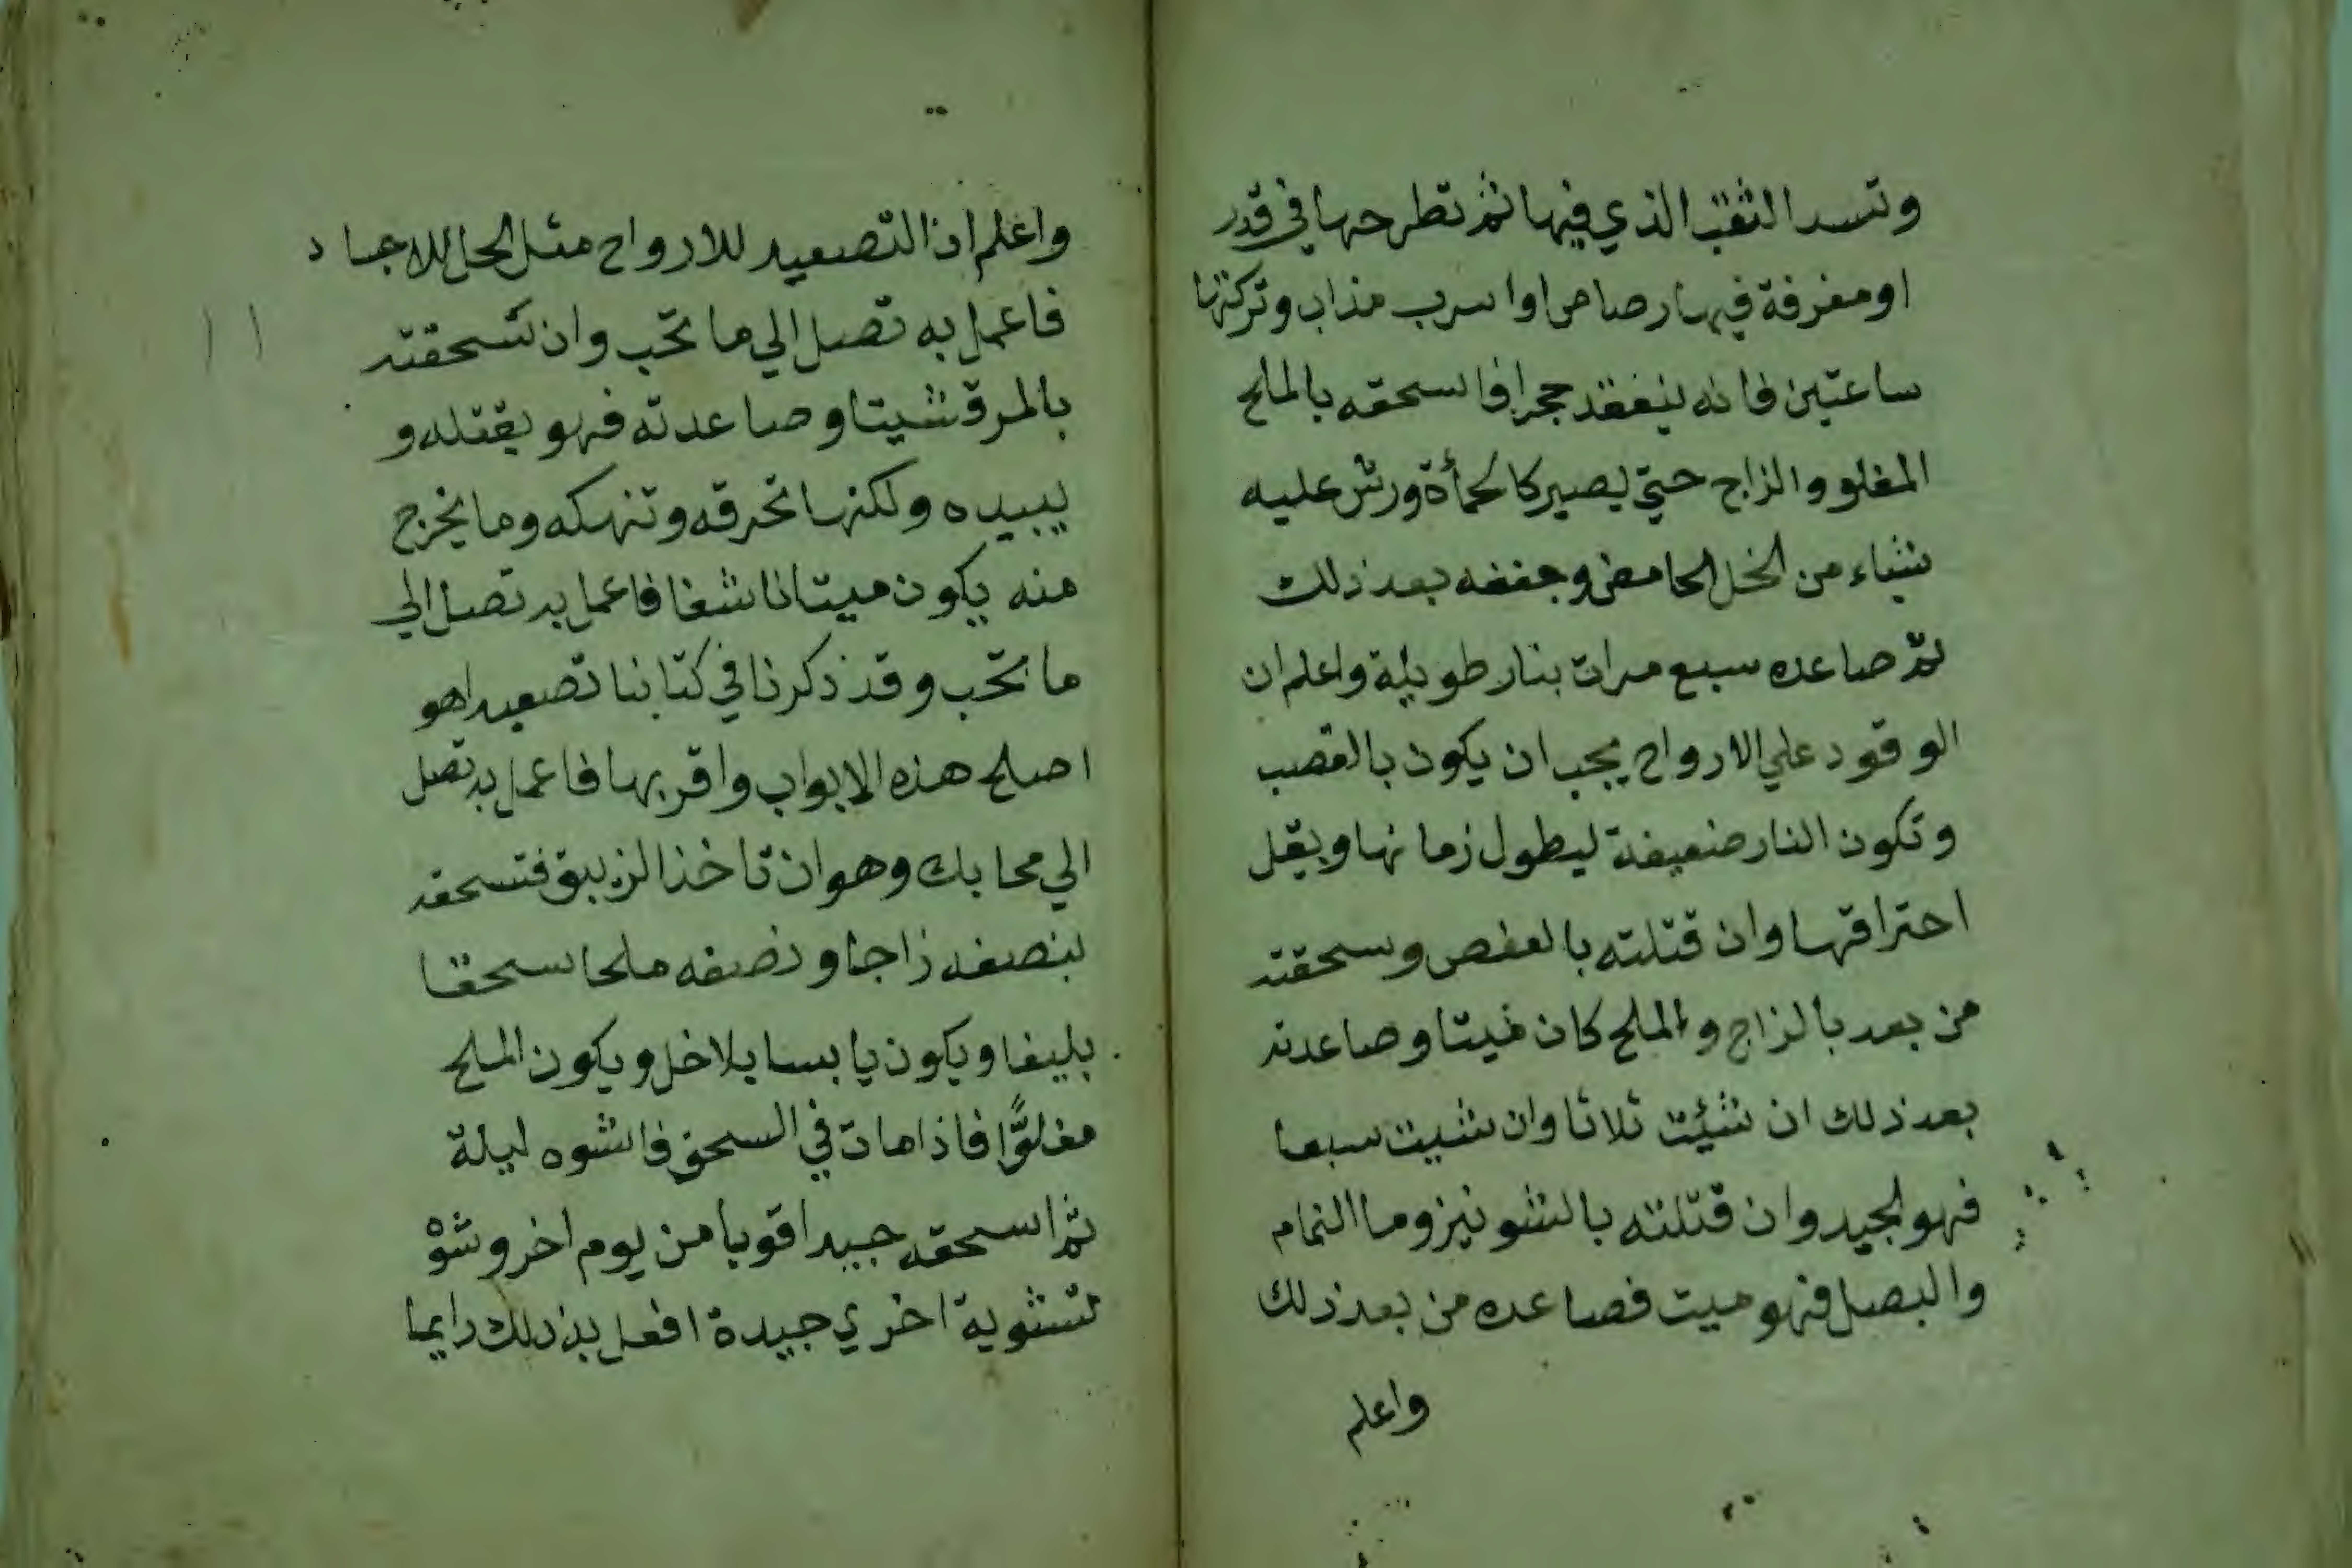 وتسد الثقب الذي فيها ثم تطرحها في قدر
او مغرفة فيها رصاص او اسرب مذاب وتركتها
ساعتين فانه ينعقد حجرا فاسحقه بالملح
المغلو والزاج حتي يصير كالحمأة ورش عليه
شياء من الخل الحامض وجففه بعد ذلك
ثم صاعده سبع مرات بنار طويلة واعلم ان
الوقود علي الارواح يجب ان يكون بالقصب
وتكون النار ضعيفة ليطول زمانها ويقل
احتراقها وان قتلته بالعفص وسحقته
من بعد بالزاج والملح كان ميتا وصاعدته
بعد ذلك ان شئت ثلاثا وان شيت سبعا
فهو الجيد وان قتلته بالشونيز وما النمام
والبصل فهو ميت فصاعده من بعد ذلك
واعلم
واعلم ان التصعيد للارواح مثل الحل للاجساد
فاعمل به تصل الي ما تحب وان سحقته
بالمرقشيتا وصاعدته فهو يقتله و
يبيده ولكنها تحرقه وتنهكه وما يخرج
منه يكون ميتا ناشفا فاعمل به تصل الي
ما تحب وقد ذكرنا في كتابنا تصعيدا هو
اصلح هذه الابواب واقربها فاعمل به تصل
الي محابك وهو ان تاخذ الزيبق فتسحقه
بنصفه زاجا ونصفه ملحا سحقا
بليغا ويكون يابسا بلا خل ويكون الملح
مغلوًّا فاذا مات في السحق فاشوه ليلة
ثم اسحقه جيدا قويا من يوم اخر وشوه
تشوية اخري جيدة افعل به ذلك دايما
١١